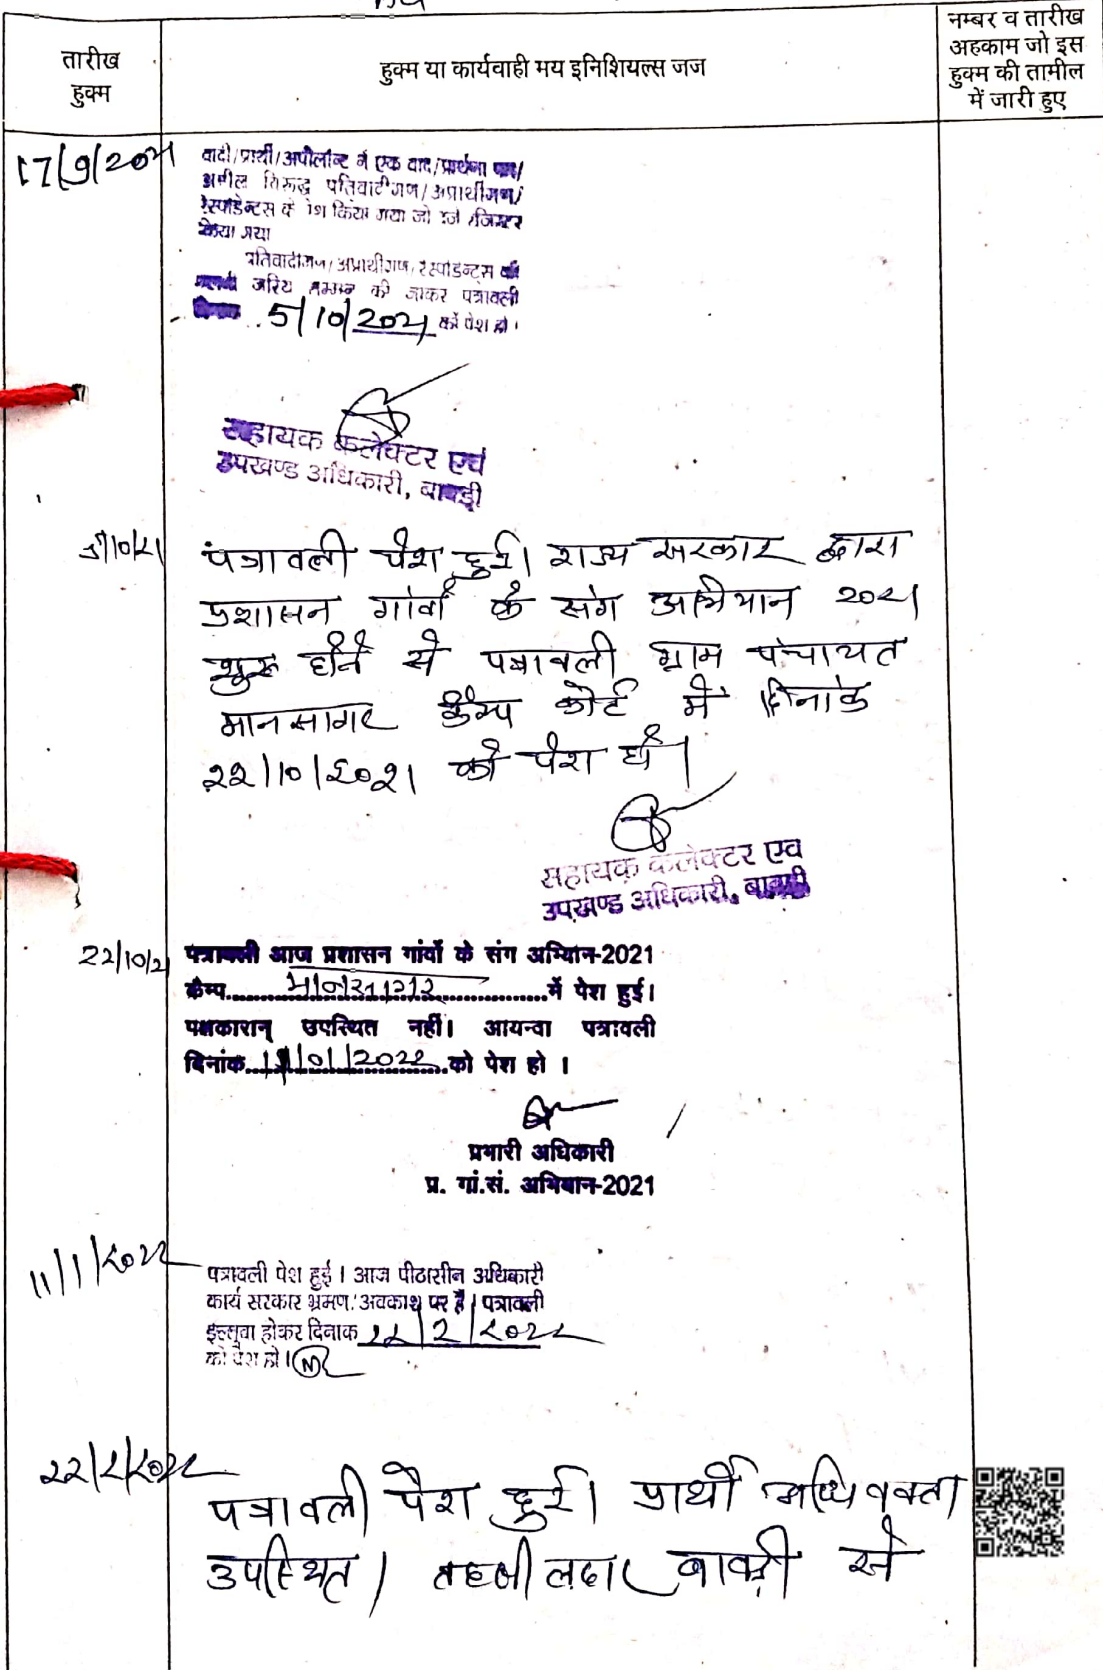 तारीख
हुक्म
हुक्म या कार्यवाही मय इनिशियल्स जज
नम्बर व तारीख
अहकाम जो इस
हुक्म की तामील
में जारी हुए
17/9/2021
वादी/प्रार्थी/अपीलांट ने एक वाद/प्रार्थना पत्र/
अपील विरूद्ध प्रतिवादीगण/अप्रार्थीगण/
रेस्पोंडेन्टस के पेश किया गया जो दर्ज रजिस्टर
किया गया
प्रतिवादीगण/अप्रार्थीगण/रेस्पोंडेन्ट्स की
जरिये सम्मन की जाकर पत्रावली
दिनांक 5/10/2021 को पेश हो।
सहायक कलेक्टर एवं
उपखण्ड अधिकारी, बावड़ी
5/10/21
पत्रावली पेश हुई। राज्य सरकार द्वारा
प्रशासन गांवों के संग अभियान 2021
शुरू होने से पत्रावली ग्राम पंचायत
मानसागर कैम्प कोर्ट में दिनांक
22/10/2021 को पेश हो।
सहायक कलेक्टर एवं
उपखण्ड अधिकारी, बावड़ी
22/10/21
पत्रावली आज प्रशासन गांवों के संग अभियान-2021
कैम्प मानसागर में पेश हुई।
पक्षकारान् उपस्थित नहीं। आयन्दा पत्रावली
दिनांक 11/01/2022 को पेश हो ।
प्रभारी अधिकारी
प्र. गां.सं. अभियान-2021
11/1/2022
पत्रावली पेश हुई। आज पीठासीन अधिकारी
कार्य सरकार भ्रमण/अवकाश पर है। पत्रावली
इल्तुवा होकर दिनांक 22/2/2022
को पेश हो।
22/2/2022
पत्रावली पेश हुई। प्रार्थी अधिवक्ता
उपस्थित। तहसीलदार बावड़ी से